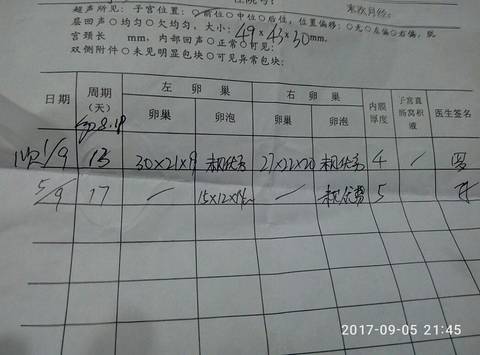 住院号:
末次月经:
超声所见: 子宫位置: ○前位○中位○后位, 位置偏移: ○无○左偏○右偏, 肌
层回声○均匀○欠均匀, 大小: 49×43×30mm.
宫颈长 mm, 内部回声○正常○可见:
双侧附件○未见明显包块○可见异常包块:
日期 周期(天) 左卵巢 右卵巢 内膜厚度 子宫直肠窝积液 医生签名
卵巢 卵泡 卵巢 卵泡
1/9 13 30×21×9 未见优势 27×22×20 未见优势 4 /
5/9 17 / 15×12×14 / 未见优势 5
2017-09-05 21:45